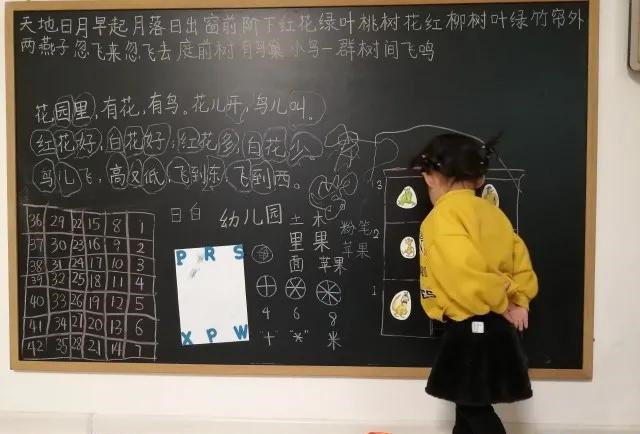 天地日月早起月落日出窗前阶下红花绿叶桃树花红柳树叶绿竹帘外
两燕子忽飞来忽飞去庭前树有鸟巢小鸟一群树间飞鸣
花园里,有花,有鸟。花儿开,鸟儿叫。
红花好,白花好,红花多,白花少。
鸟儿飞,高又低,飞到东,飞到西。
日 白 幼儿园 土 木
里 果 粉笔
面 苹果 苹果
36 29 22 15 8 1
37 30 23 16 9 2
38 31 24 17 10 3
39 32 25 18 11 4
40 33 26 19 12 5
41 34 27 20 13 6
42 35 28 21 14 7
P R S
X P W
4 6 8
"十" "*" 米
3
2
1